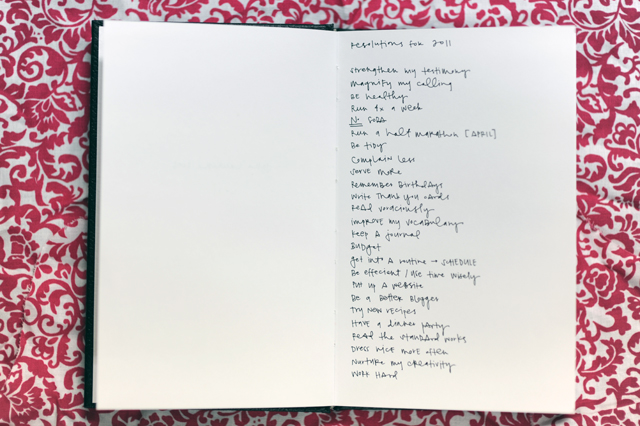 resolutions for 2011
strengthen my testimony
magnify my calling
be healthy
Run 4x a week
No SODA
Run a half marathon [APRIL]
Be tidy
Complain less
serve more
Remember Birthdays
Write Thank you cards
Read voraciously
improve my vocabulary
Keep A journal
Budget
get into A routine → SCHEDULE
Be effecient / use time wisely
Put up A website
Be a Better Blogger
Try New recipes
Have a dinner party
Read the standard works
Dress nice more often
Nurture my creativity
Work Hard